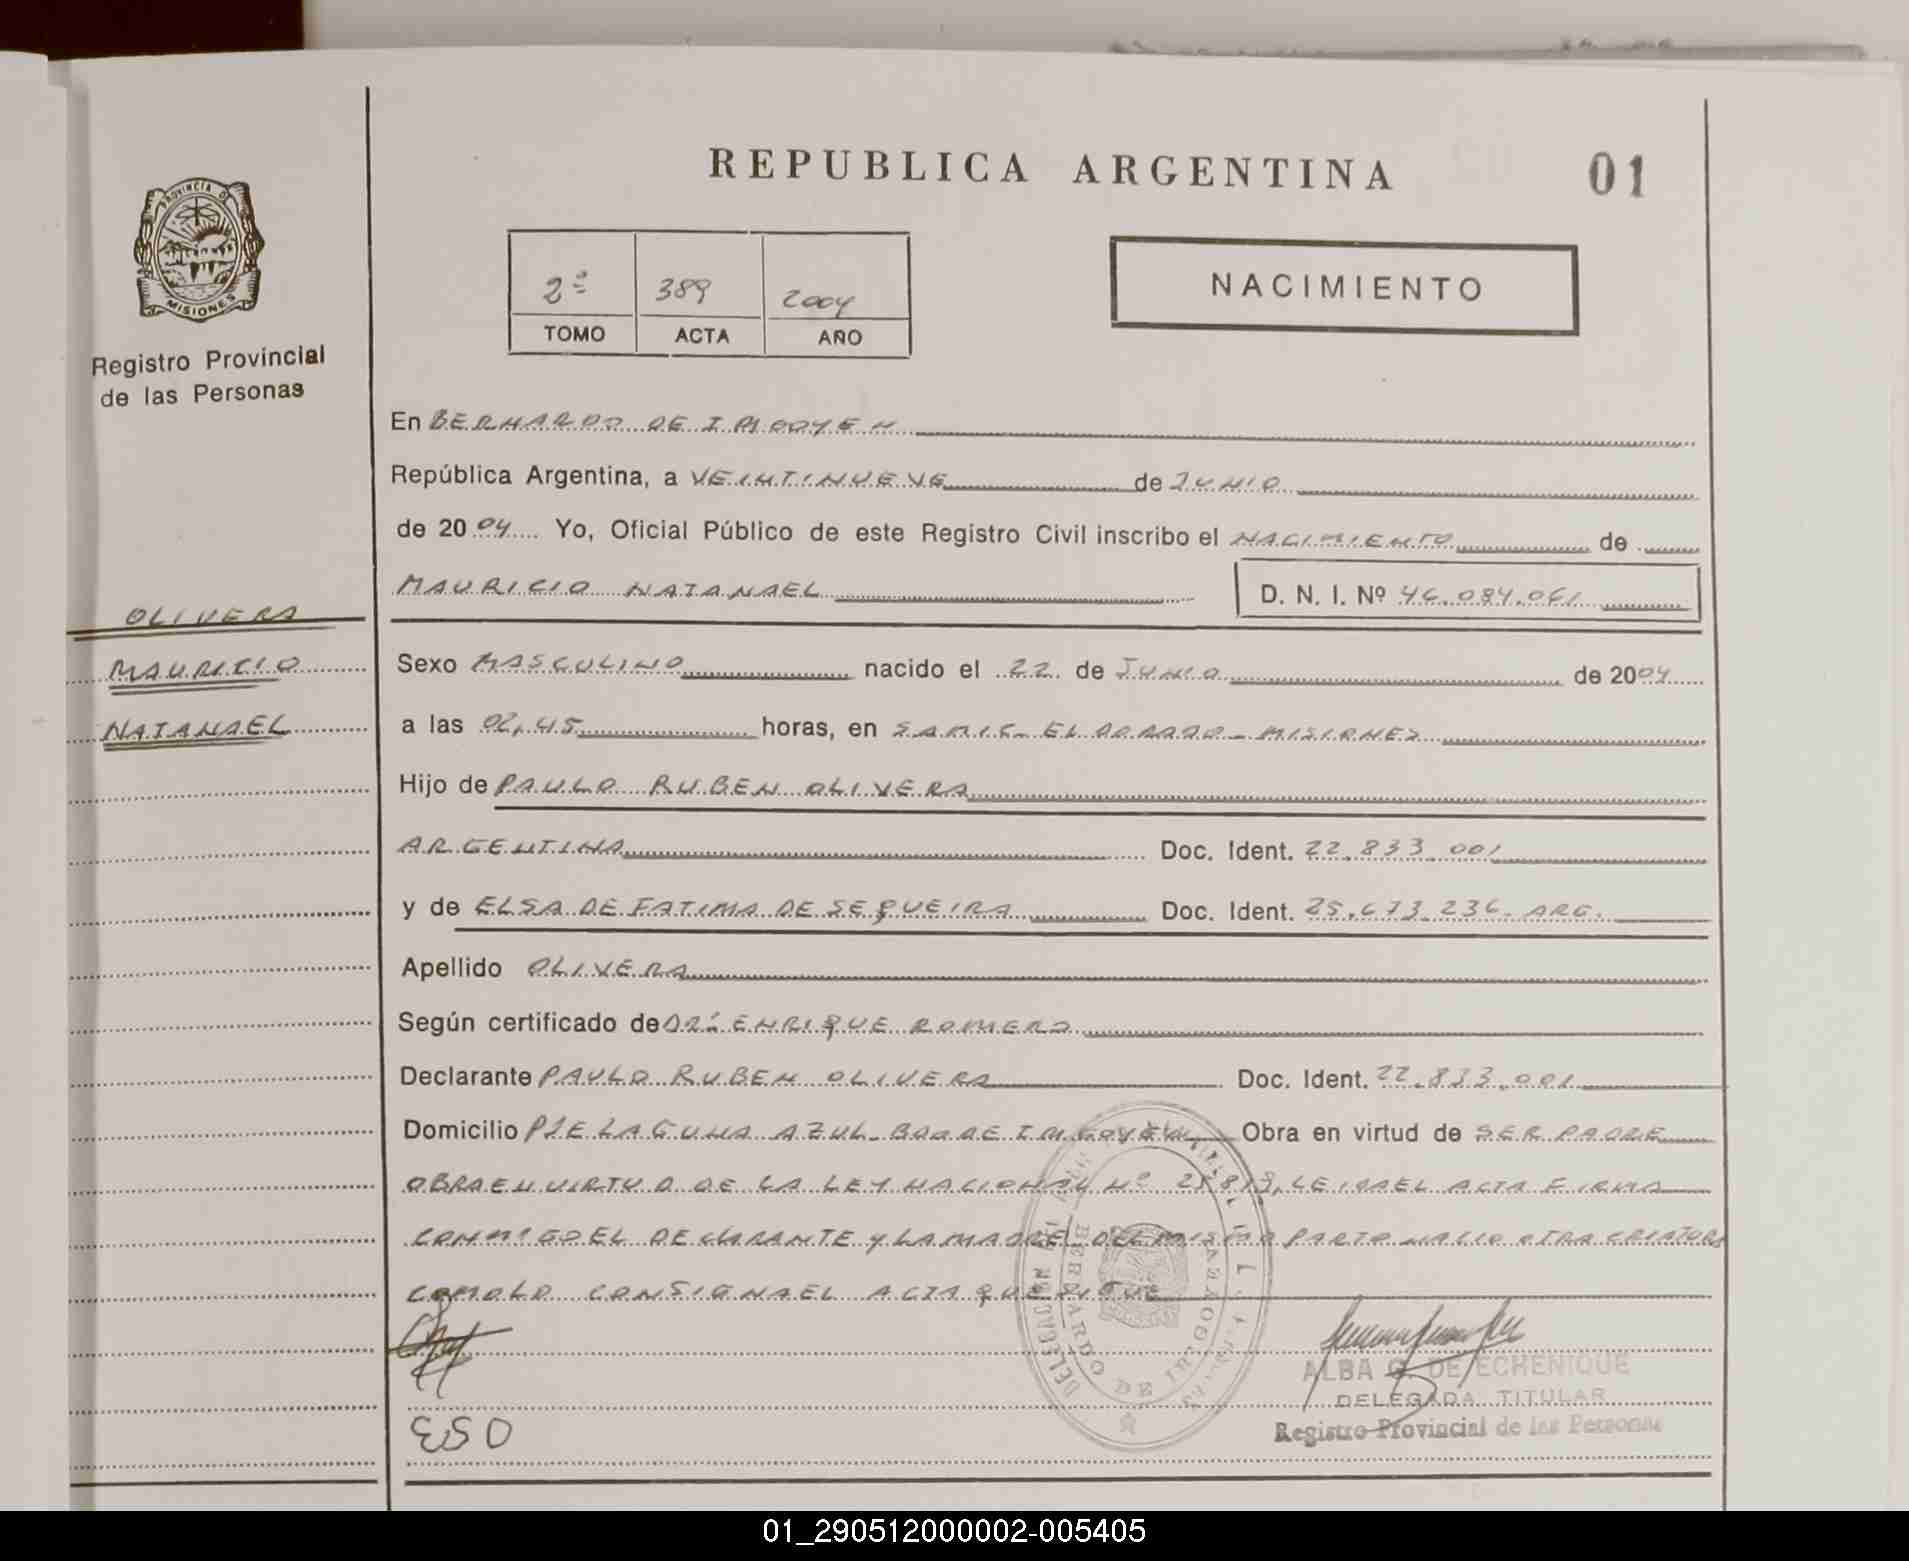 REPUBLICA ARGENTINA
01
PROVINCIA DE
MISIONES
Registro Provincial
de las Personas
2º 389 2004
TOMO ACTA AÑO
NACIMIENTO
En BERNARDO DE IRIGOYEN
República Argentina, a VEINTINUEVE de JUNIO
de 2004 Yo, Oficial Público de este Registro Civil inscribo el NACIMIENTO de
MAURICIO NATANAEL D. N. I. Nº 46.084.061
OLIVERA
MAURICIO
NATANAEL
Sexo MASCULINO nacido el 22 de JUNIO de 2004
a las 02,45 horas, en SAMIC- ELDORADO- MISIONES
Hijo de PAULO RUBEN OLIVERA
ARGENTINA Doc. Ident. 22.833.001
y de ELSA DE FATIMA DE SEQUEIRA Doc. Ident. 25.673.236. ARG.
Apellido OLIVERA
Según certificado de DR: ENRIQUE ROMERO
Declarante PAULO RUBEN OLIVERA Doc. Ident. 22.833.001
Domicilio PJE LAGUNA AZUL- BDO DE IRIGOYEN Obra en virtud de SER PADRE
OBRA EN VIRTUD DE LA LEY NACIONAL Nº LEIDA EL ACTA FIRMA
CONMIGO EL DECLARANTE Y LA MADRE DEL MISMO PARTO NACIO OTRA CRIATURA
COMO LO CONSIGNA EL ACTA QUE SIGUE
DELEGACION
BERNARDO DE IRIGOYEN
ESD
ALBA G. DE ECHENIQUE
DELEGADA TITULAR
Registro Provincial de las Personas
01_290512000002-005405